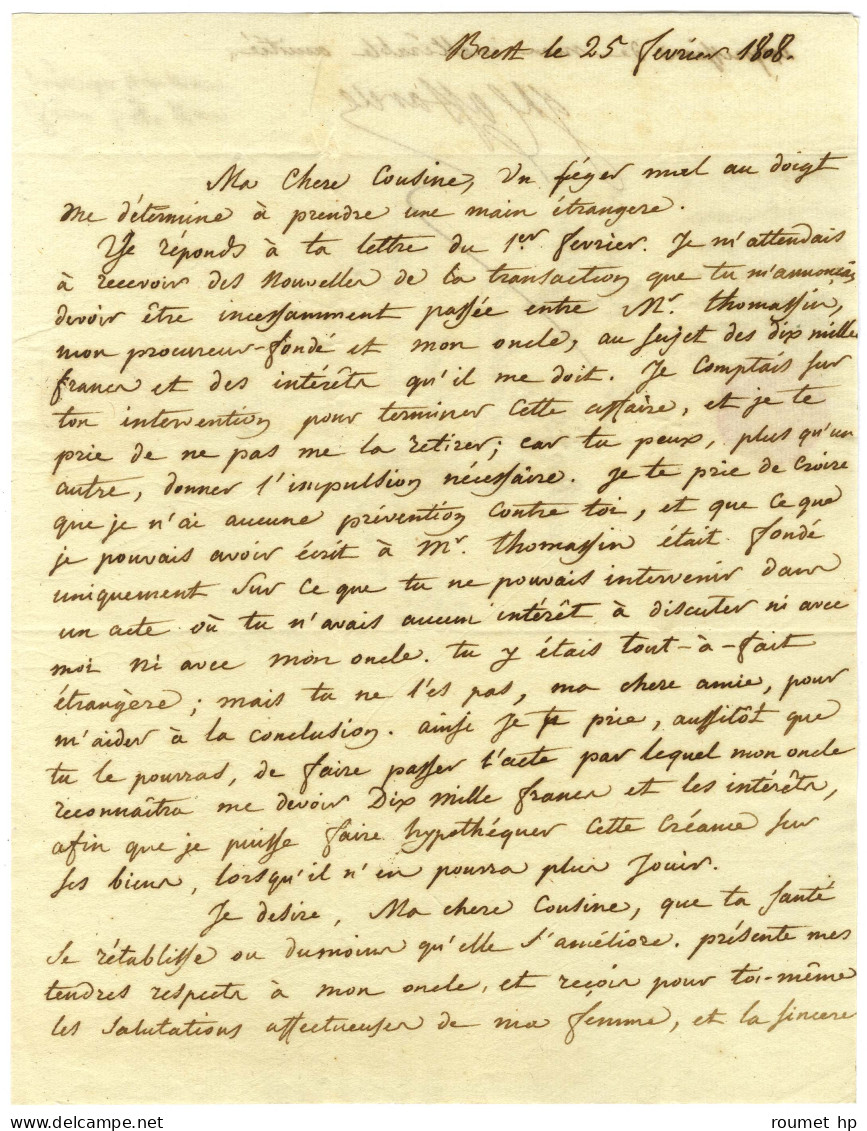 Brest le 25 fevrier 1808.
Ma Chere Cousine, Un léger mal au doigt
me détermine à prendre une main étrangere.
Je réponds à ta lettre du 1er. fevrier. Je m'attendais
à recevoir des Nouvelles de la transaction que tu m'annonçais
devoir être incessamment passée entre Mr. thomassin,
mon procureur-fondé et mon oncle, au sujet des dix mille
francs et des intérêts qu'il me doit. Je Comptais sur
ton intervention pour terminer Cette affaire, et je te
prie de ne pas me la retirer; car tu peux, plus qu'un
autre, donner l'impulsion nécessaire. Je te prie de Croire
que je n'ai aucune prévention Contre toi, et que Ce que
je pouvais avoir écrit à Mr. thomassin était fondé
uniquement sur Ce que tu ne pouvais intervenir dans
un acte où tu n'avais aucun intérêt à discuter ni avec
moi ni avec mon oncle. tu y étais tout-à-fait
étrangère; mais tu ne l'es pas, ma chere amie, pour
m'aider à la Conclusion. ainsi je te prie, aussitôt que
tu le pourras, de faire passer l'acte par lequel mon oncle
reconnaîtra me devoir Dix mille francs et les intérêts,
afin que je puisse faire hypothéquer Cette Créance sur
ses biens, lorsqu'il n'en pourra plus Jouir.
Je desire, Ma chere Cousine, que ta Santé
Se rétablisse ou dumoins qu'elle S'améliore. présente mes
tendres respects à mon oncle, et reçois pour toi-même
les Salutations affectueuses de ma femme, et la Sincere
roumet hp